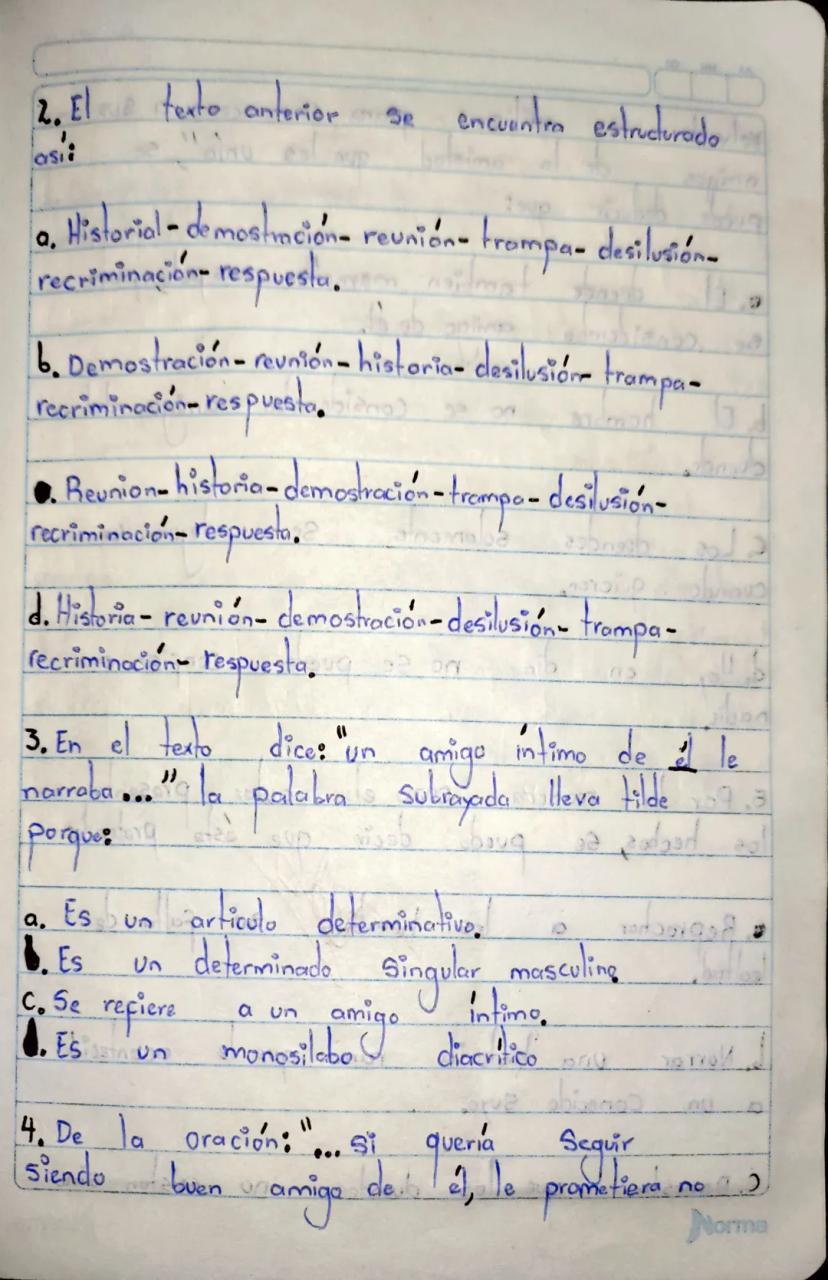 2. El texto anterior se encuentra estructurado
así:
a. Historial-demostración-reunión-trampa-desilusión-
recriminación-respuesta.
b. Demostración-reunión-historia-desilusión-trampa-
recriminación-respuesta.
Reunion-historia-demostración-trampa-desilusión-
recriminación-respuesta.
d. Historia-reunión-demostración-desilusión-trampa-
recriminación-respuesta.
3. En el texto dice: "un amigo íntimo de él le
narraba..." la palabra subrayada lleva tilde
porque:
a. Es un articulo determinativo.
b. Es un determinado singular masculino
c. Se refiere a un amigo íntimo.
d. Es un monosilabo diacrítico
4. De la oración: "... si quería seguir
siendo buen amigo de él, le prometiera no
Norma